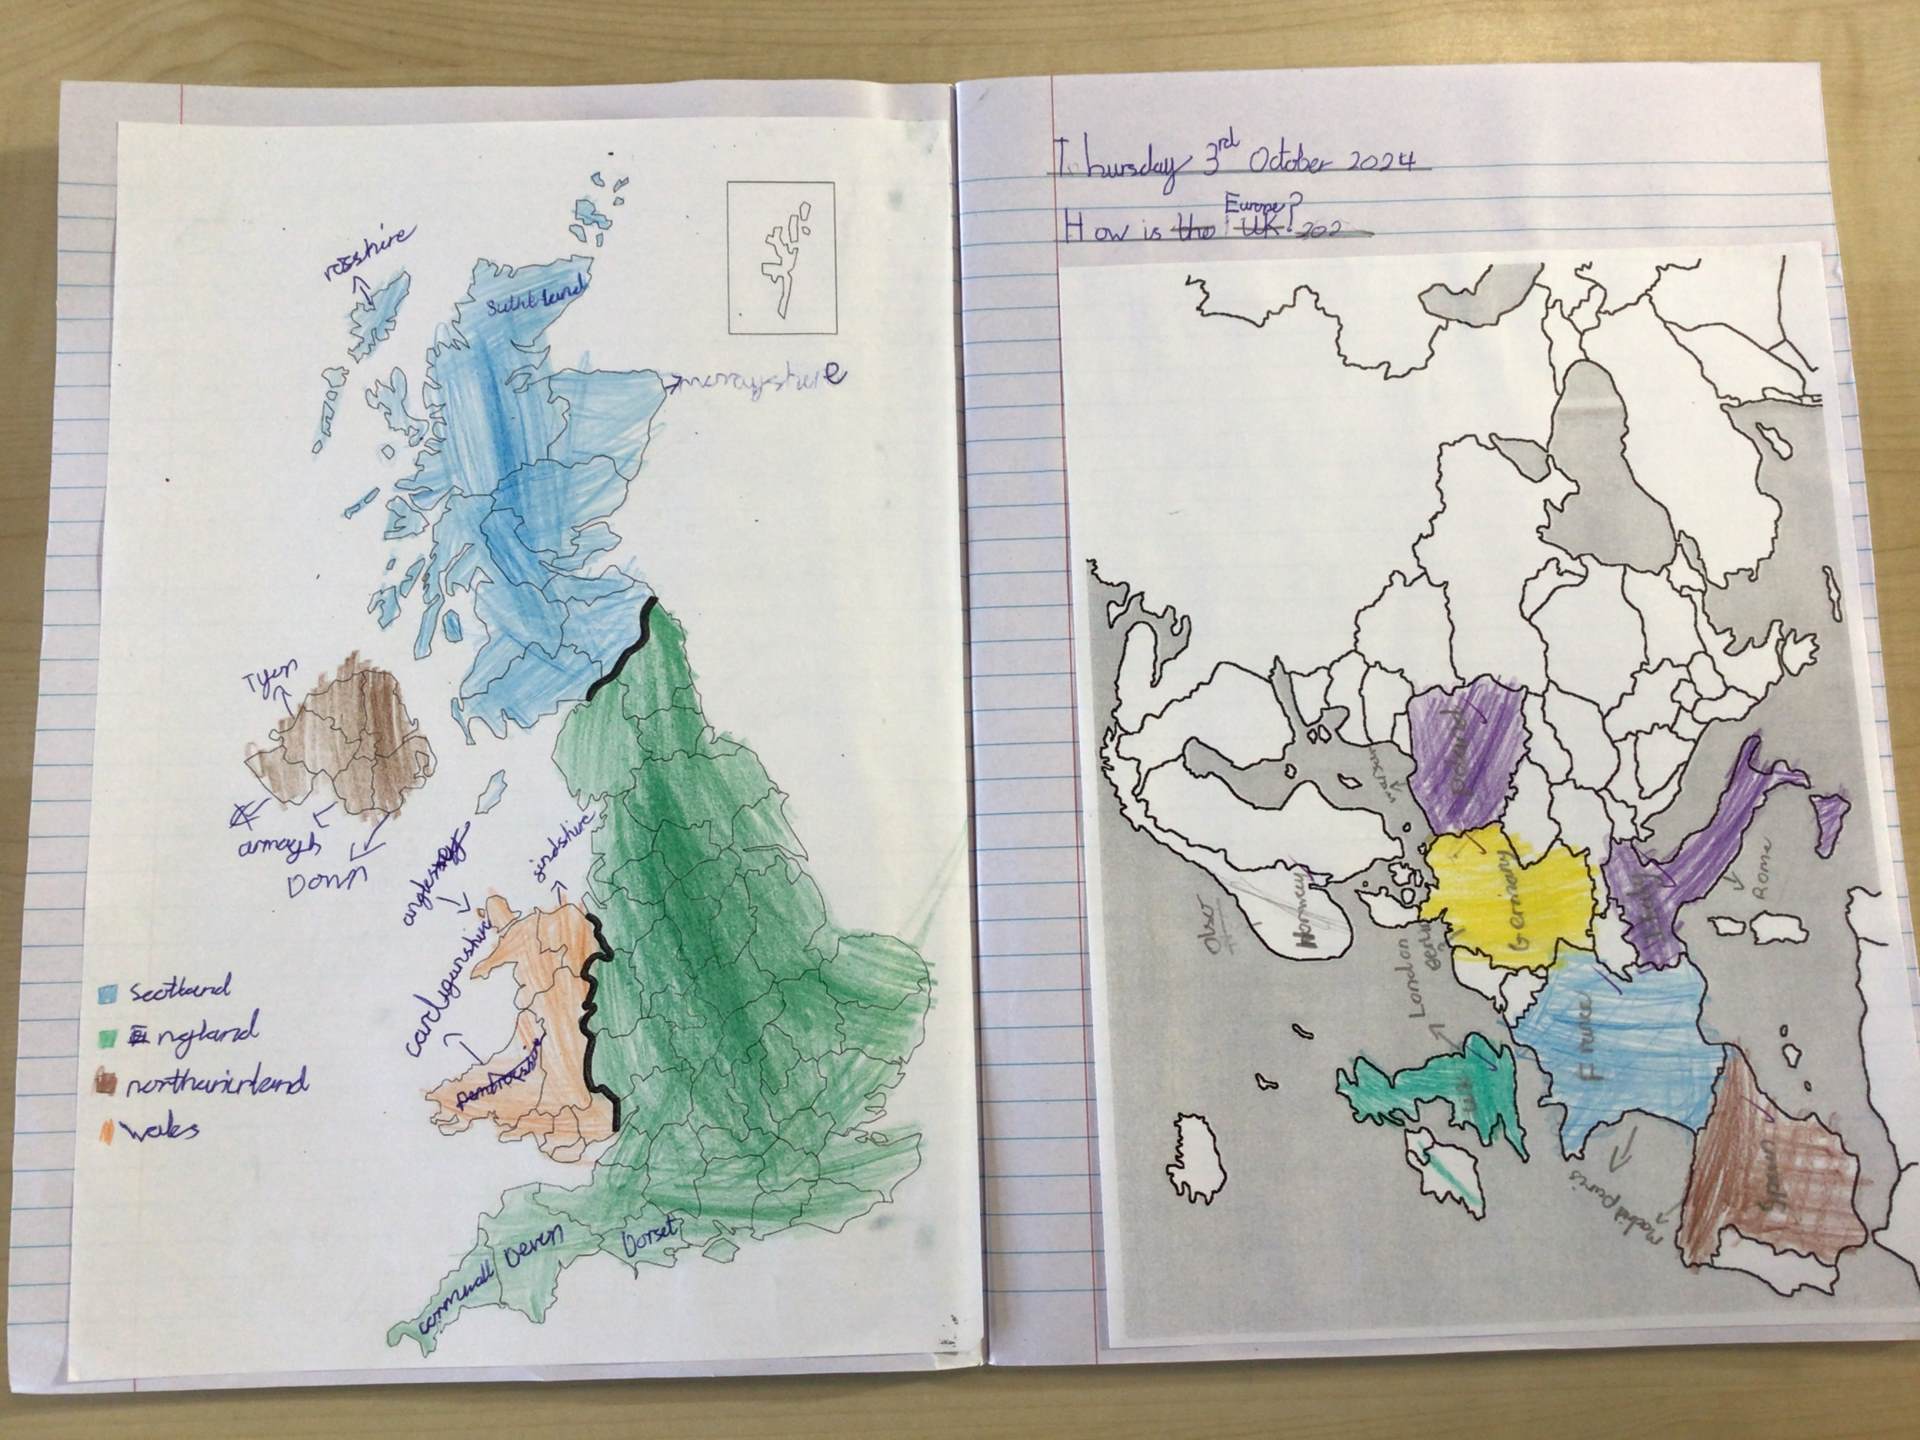 rosshire
Suthtland
morrayshire
Tyon
armagh
Down
anglesey
jindshire
cardiganshire
pembrossire
scotland
England
northanirland
wales
Devon
Dorset
cornwall
Thursday 3rd October 2024
Europe?
How is the UK? 202
Poland
warsaw
Germany
Norway
Olso
London
Berlin
Italy
Rome
France
UK
paris
madrid
Spain